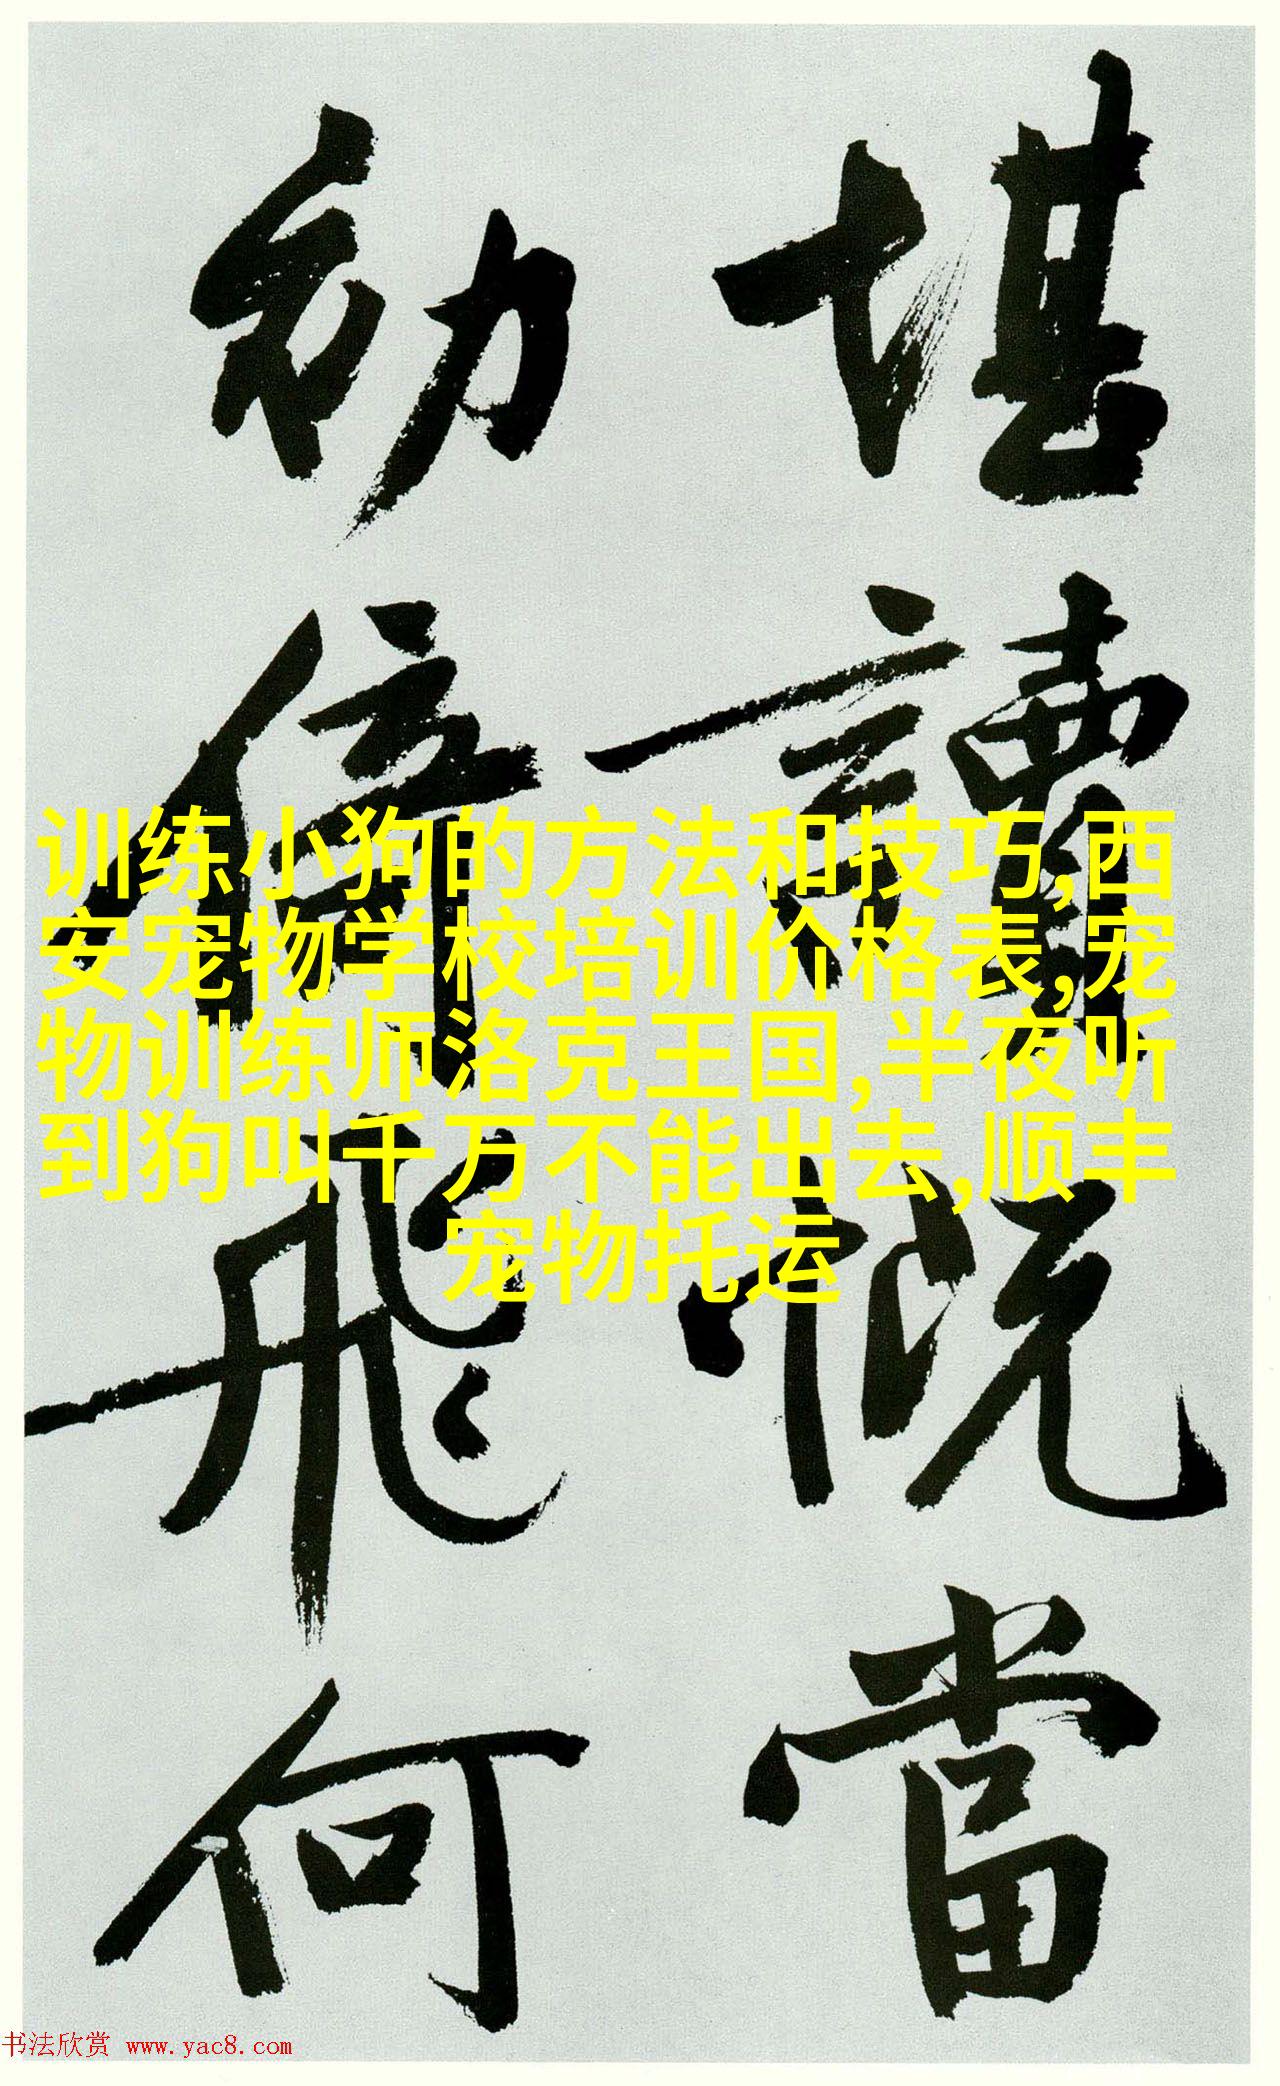 堪讀慨當
幼倍飛何
训练小狗的方法和技巧,西
安宠物学校培训价格表,宠
物训练师洛克王国,半夜听
到狗叫千万不能出去,顺丰
宠物托运
书法欣赏 www.yac8.com